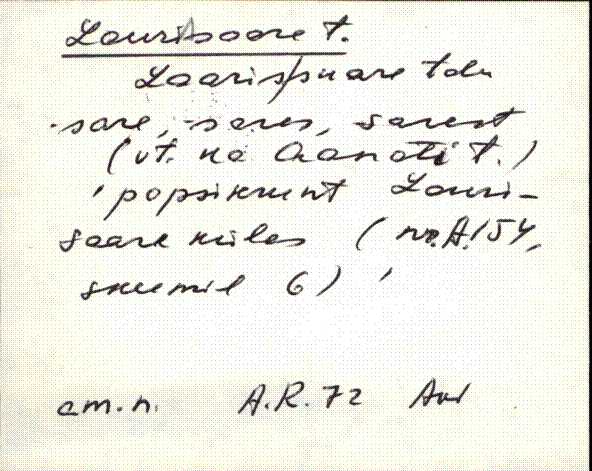 Laurisoare t.
Laarispuare talu
-sare, -sares, -sarest
(vt. ka Aanati t.)
'popsikrunt Lauri-
saare külas (nr. A 154,
skeemil 6)'
am.n. A.R. 72